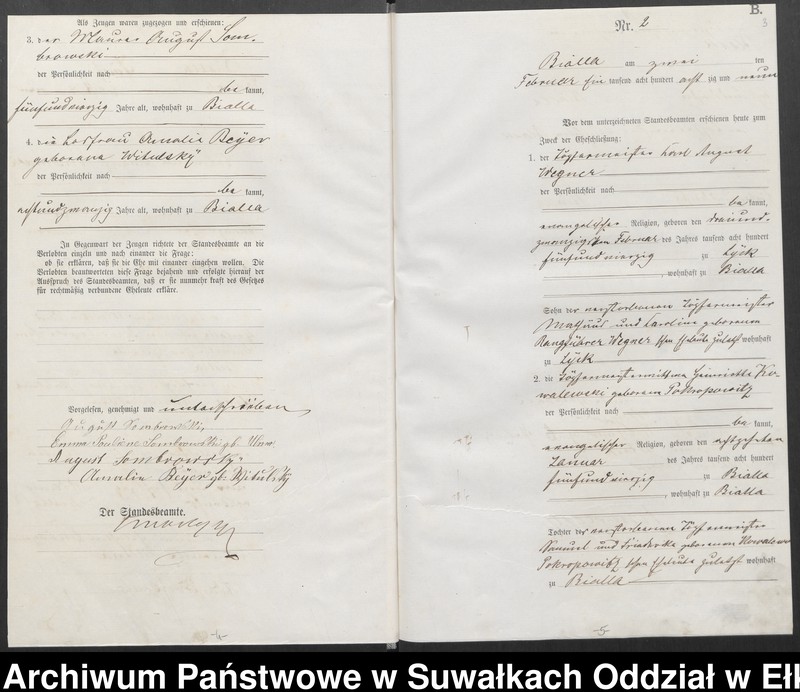 Als Zeugen waren zugezogen und erschienen:
3. der Maurer August Som-
browski
der Persönlichkeit nach
be kannt,
fünfundvierzig Jahre alt, wohnhaft zu Bialla
4. die Losfrau Amalie Beÿer
geborene Witulskÿ
der Persönlichkeit nach
be kannt,
achtundzwanzig Jahre alt, wohnhaft zu Bialla
In Gegenwart der Zeugen richtete der Standesbeamte an die
Verlobten einzeln und nach einander die Frage:
ob sie erklären, daß sie die Ehe mit einander eingehen wollen. Die
Verlobten beantworteten diese Frage bejahend und erfolgte hierauf der
Ausspruch des Standesbeamten, daß er sie nunmehr kraft des Gesetzes
für rechtmäßig verbundene Eheleute erkläre.
Vorgelesen, genehmigt und unterschrieben
August Sombrowski
Emma Pauline Sombrowski gb.
August Sombrowski
Amalie Beÿer gb. Witulskÿ
Der Standesbeamte.
-4-
B.
3
Nr. 2
Bialla am zwei ten
Februar ein tausend acht hundert acht zig und neun
Vor dem unterzeichneten Standesbeamten erschienen heute zum
Zweck der Eheschließung:
1. der Töpfermeister Karl August
Wegner
der Persönlichkeit nach
be kannt,
evangelischer Religion, geboren den dreiund-
zwanzigsten Februar des Jahres tausend acht hundert
fünfundvierzig zu Lÿck
, wohnhaft zu Bialla
Sohn der verstorbenen Töpfermeister
und Caroline geborenen
Wegner schen Eheleute zuletzt wohnhaft
zu Lÿck
2. die Töpfermeisterwittwe Henriette Ko-
walewski geborene Pokropowitz
der Persönlichkeit nach
be kannt,
evangelischer Religion, geboren den achtzehnten
Januar des Jahres tausend acht hundert
fünfundvierzig zu Bialla
, wohnhaft zu Bialla
Tochter der verstorbenen Töpfermeister
Samuel und Friederike geborenen
Pokropowitz schen Eheleute zuletzt wohnhaft
zu Bialla
-5-
Archiwum Państwowe w Suwałkach Oddział w Ełk